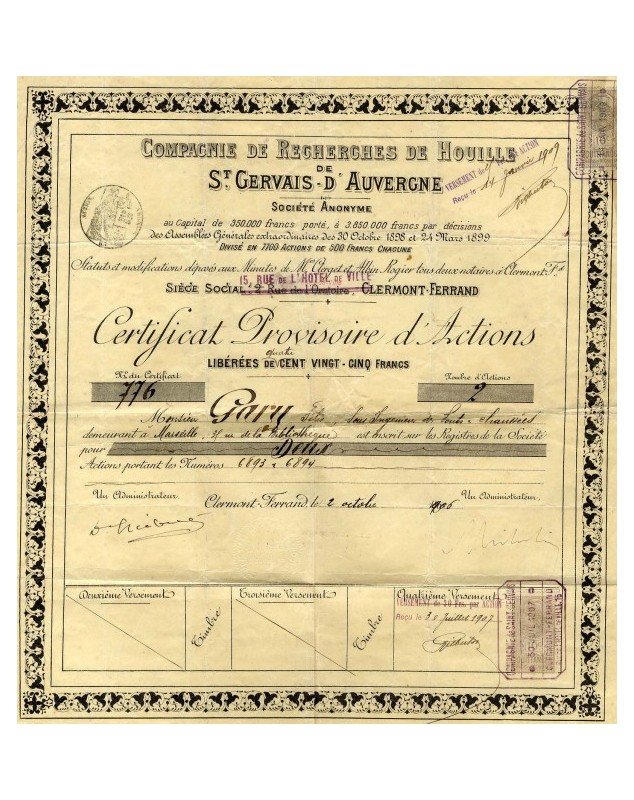 COMPAGNIE DE RECHERCHES DE HOUILLE
DE
ST. GERVAIS-D'AUVERGNE
SOCIÉTÉ ANONYME
au Capital de 350.000 francs porté, à 3.850.000 francs par décisions
des Assemblées Générales extraordinaires des 30 Octobre 1898 et 24 Mars 1899
DIVISÉ EN 7700 ACTIONS DE 500 FRANCS CHACUNE
VERSEMENT de ACTION
Reçu le 14 Janvier 1909
Statuts et modifications déposés aux Minutes de Me Clerget et Albin Rogier tous deux notaires à Clermont-Fd
15, RUE DE L'HOTEL DE VILLE
SIÈGE SOCIAL, 2 Rue de l'Oratoire, CLERMONT-FERRAND
Certificat Provisoire d'Actions
quatre
LIBÉRÉES DE CENT VINGT-CINQ FRANCS
No du Certificat
776
Nombre d'Actions
2
Monsieur Gary Sous Ingénieur des Ponts & Chaussées
demeurant à Marseille, rue de la Bibliothèque est inscrit sur les Registres de la Société
pour Deux
Actions portant les Numéros 6893 à 6894
Un Administrateur.
Clermont-Ferrand, le 2 octobre 1906
Un Administrateur,
Deuxième Versement
Timbre
Troisième Versement
Timbre
Quatrième Versement
VERSEMENT de Frs. par ACTION
Reçu le 30 Juillet 1907
COMPAGNIE de SAINT-GERVAIS
30 JUIL 1907
CLERMONT-FERRAND